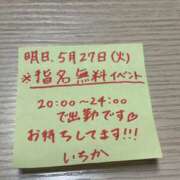 明日、5月27日(火)
※指名無料イベント
20:00~24:00
で出勤です♡
お待ちしてます!!!
いちか